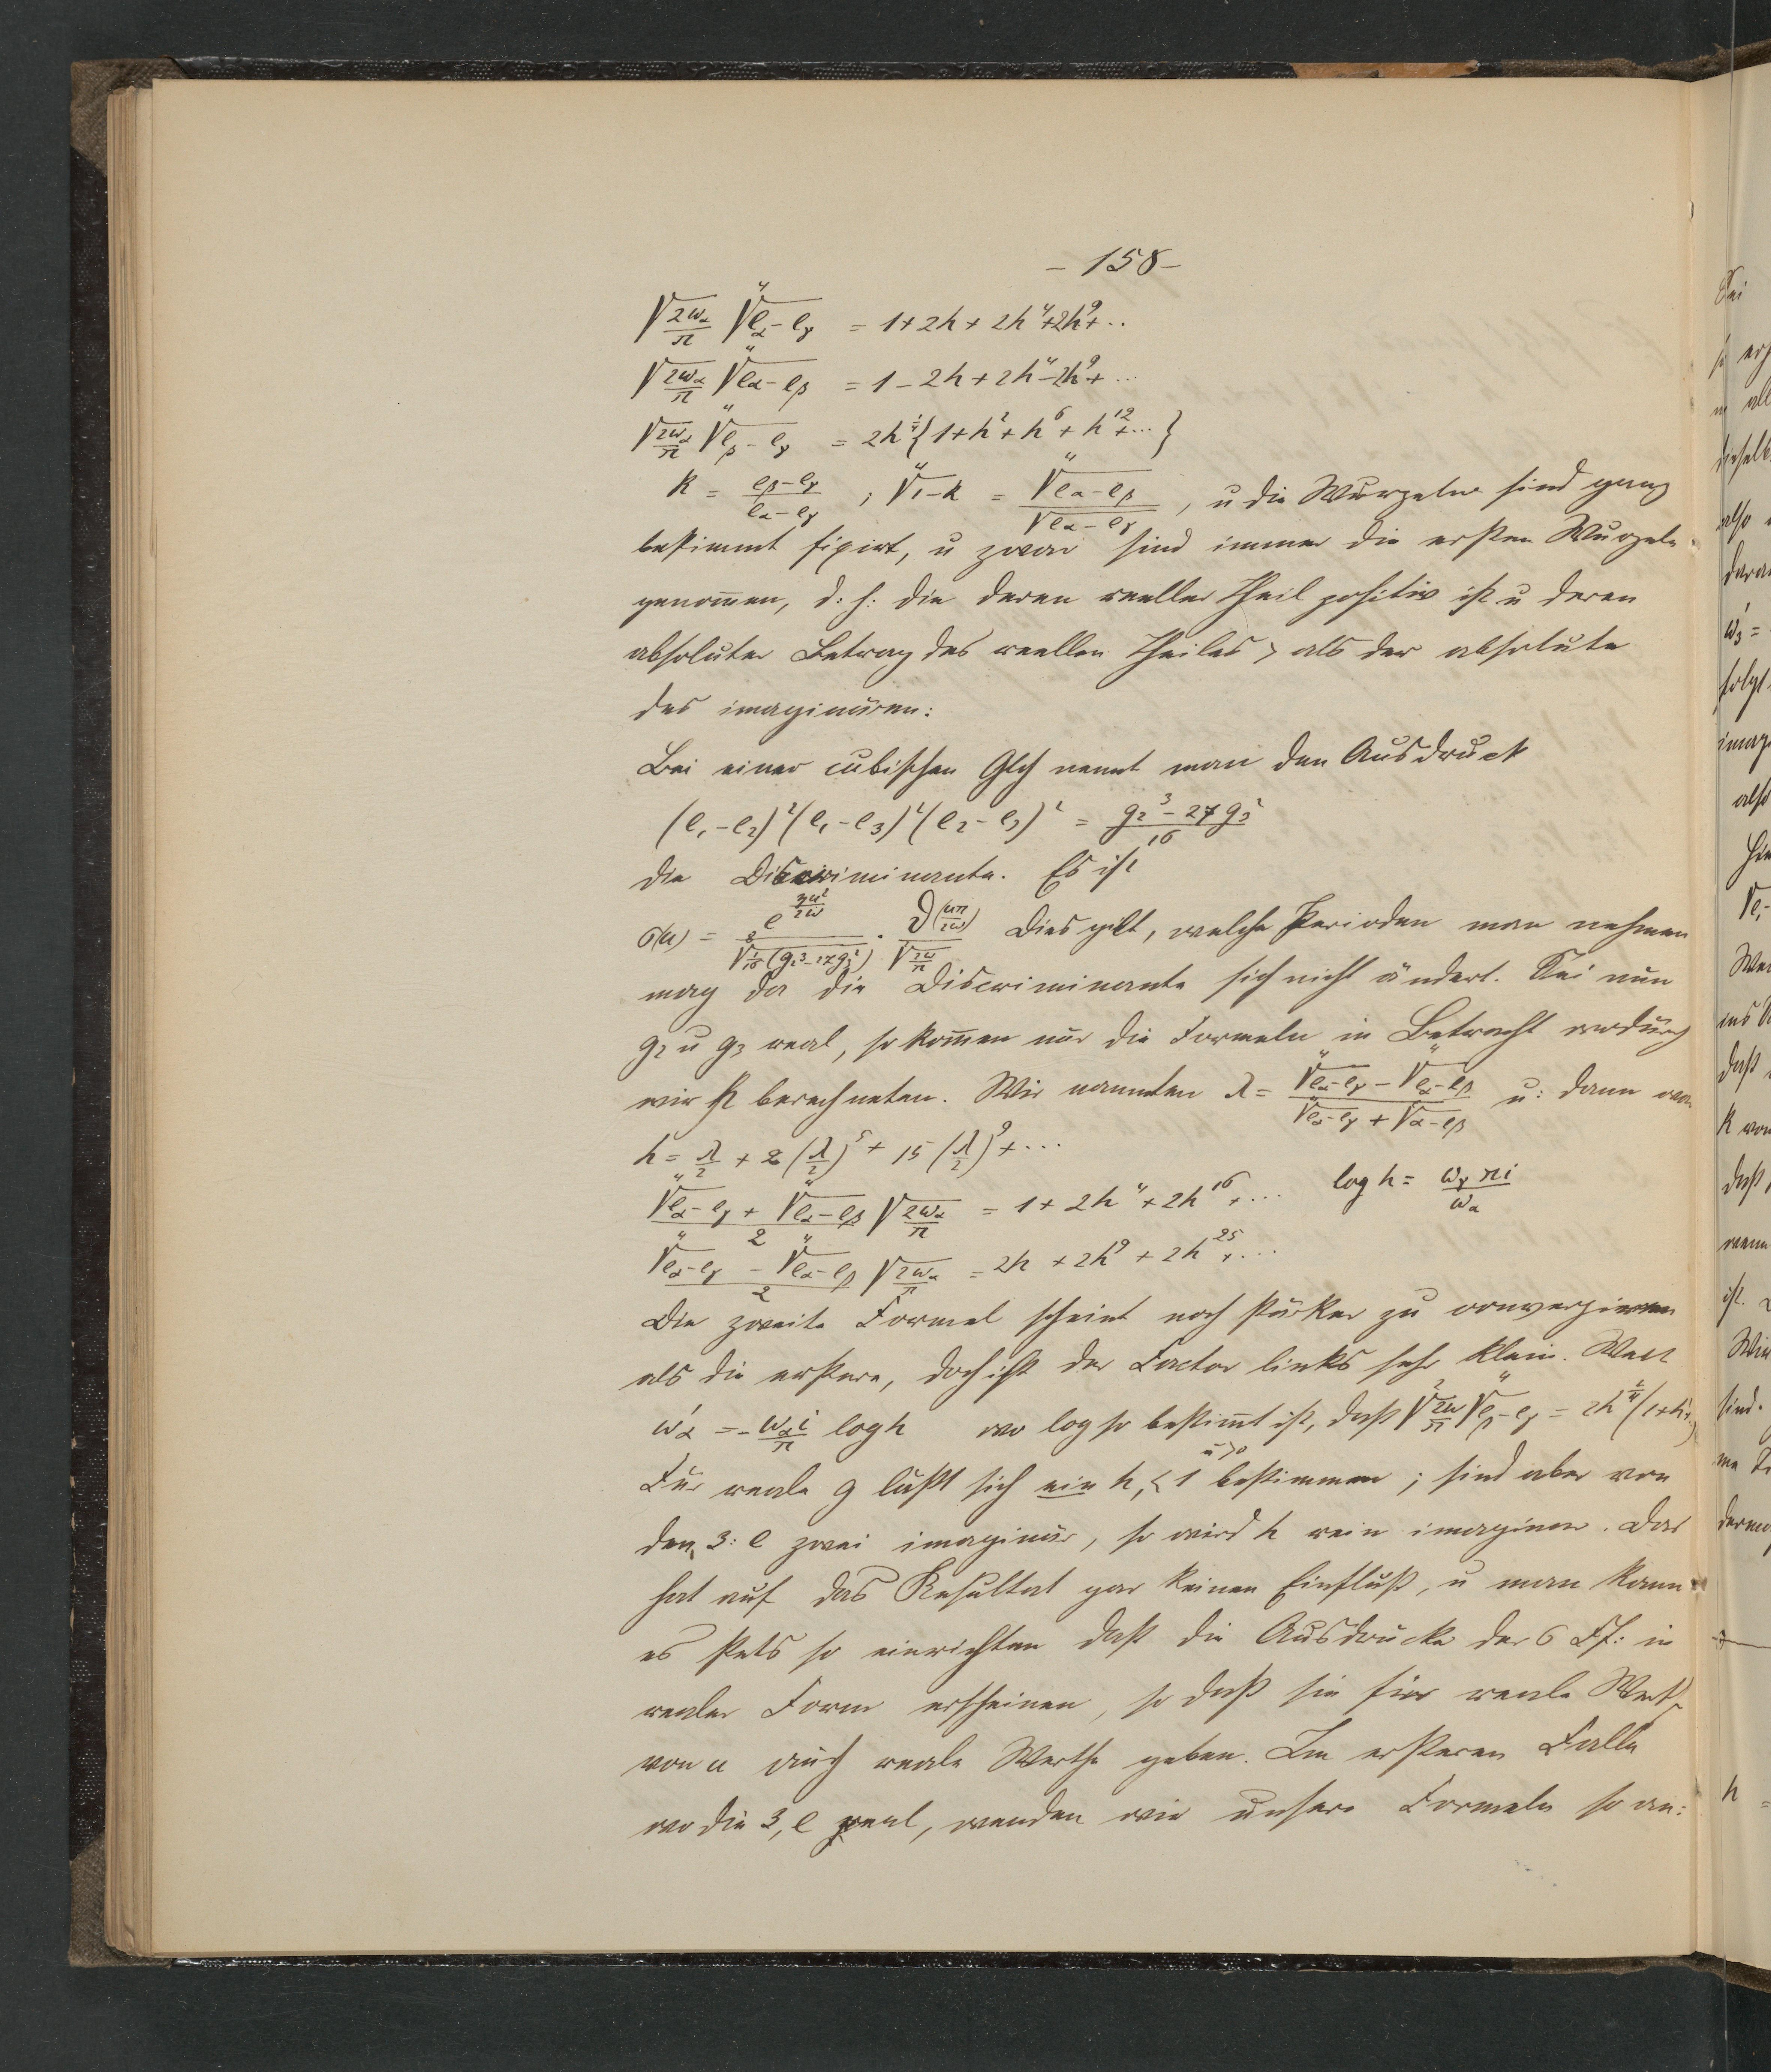 – 158 –
√(2ω_α/π) ∜(e_α – e_γ) = 1 + 2h + 2h⁴ + 2h⁹ + ..
√(2ω_α/π) ∜(e_α – e_β) = 1 – 2h + 2h⁴ – 2h⁹ + ...
√(2ω_α/π) ∜(e_β – e_γ) = 2h^¼ {1 + h² + h⁶ + h¹² + ...}
k = (e_β – e_γ)/(e_α – e_γ) ; ∜(1 – k) = ∜(e_α – e_β)/∜(e_α – e_γ) , u die Wurzeln sind ganz
bestimmt fixirt, u zwar sind immer die ersten Wurzeln
genom̄en, d: h: die deren reeller Theil positiv ist u deren
absoluter Betrag des reellen Theiles > als der absolute
des imaginären:
Bei einer cubischen Glch nennt man den Ausdruck
(e₁ – e₂)² (e₁ – e₃)² (e₂ – e₃)² = (g₂³ – 27 g₃²)/16
die Discriminante. Es ist
σ(u) = e^(ηu²/2ω) / ⁸√(1/16 (g₂³ – 27g₃²)) · ϑ(uπ/2ω) / √(2ω/π) Dies gilt, welche Perioden man nehmen
mag da die Discriminante sich nicht ändert. Sei nun
g₂ u g₃ real, so kom̄en nur die Formeln in Betracht wodurch
wir h berechneten. Wir nannten λ = (∜(e_α – e_γ) – ∜(e_α – e_β))/(∜(e_α – e_γ) + √(α – e_β)) u: dann war
h = λ/2 + 2 (λ/2)⁵ + 15 (λ/2)⁹ + ...
(∜(e_α – e_γ) + ∜(e_α – e_β))/2 √(2ω_α/π) = 1 + 2h⁴ + 2h¹⁶ + ... log h = ω_γ πi/ω_α
(∜(e_α – e_γ) – ∜(e_α – e_β))/2 √(2ω_α/π) = 2h + 2h⁹ + 2h²⁵ + ...
Die zweite Formel scheint noch stärker zu convergieren
als die erstere, doch ist der Factor links sehr klein.
ω'_α = – ω_α i/π log h wo log so bestim̄t ist, daß √(2ω/π) ∜(e_β – e_γ) = 2h^¼ (1 + h²+
Für reale g läßt sich ein h, < 1 u > 0 bestimmen ; sind aber von
den 3: e zwei imaginär, so wird h rein imaginär. Das
hat auf das Resultat gar keinen Einfluß, u man kann
es stets so einrichten daß die Ausdrücke der σ Ff: in
realer Form erscheinen, so daß sie für reale Werthe
von u auch reale Werthe geben. Im ersteren Falle
wo die 3, e real, wenden wir unsere Formeln so an: